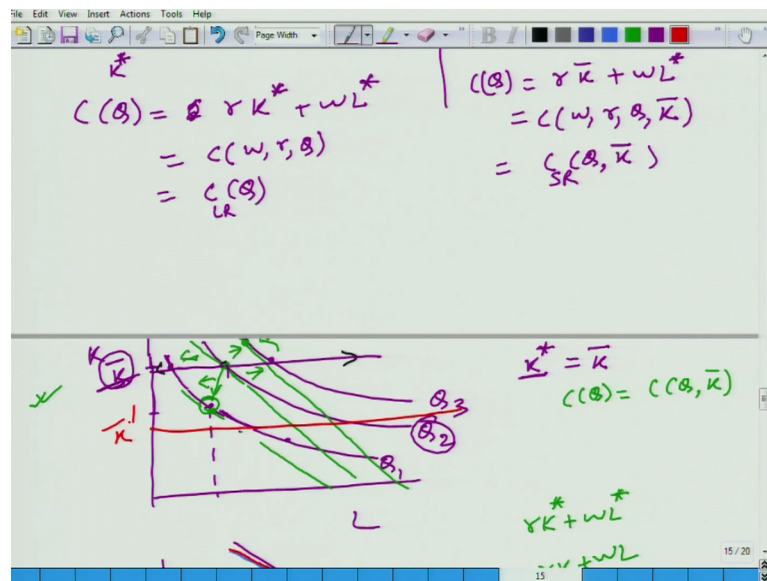 File Edit View Insert Actions Tools Help
Page Width
B I
K*
C(Q) = r K* + wL*
= C(w, r, Q)
= C_LR (Q)
C(Q) = r K̄ + wL*
= C(w, r, Q, K̄)
= C_SR (Q, K̄)
K
K̄
K̄'
Q3
Q2
Q1
L
K* = K̄
C(Q) = C(Q, K̄)
rK* + wL*
rK + wL
15 / 20
15